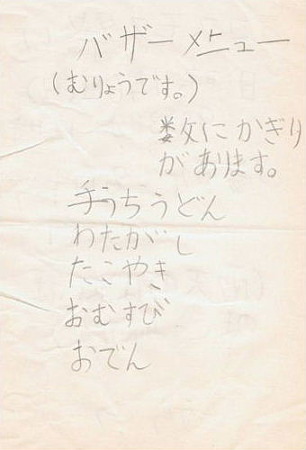 バザーメニュー
(むりょうです。)
数にかぎり
があります。
手うちうどん
わたがし
たこやき
おむすび
おでん